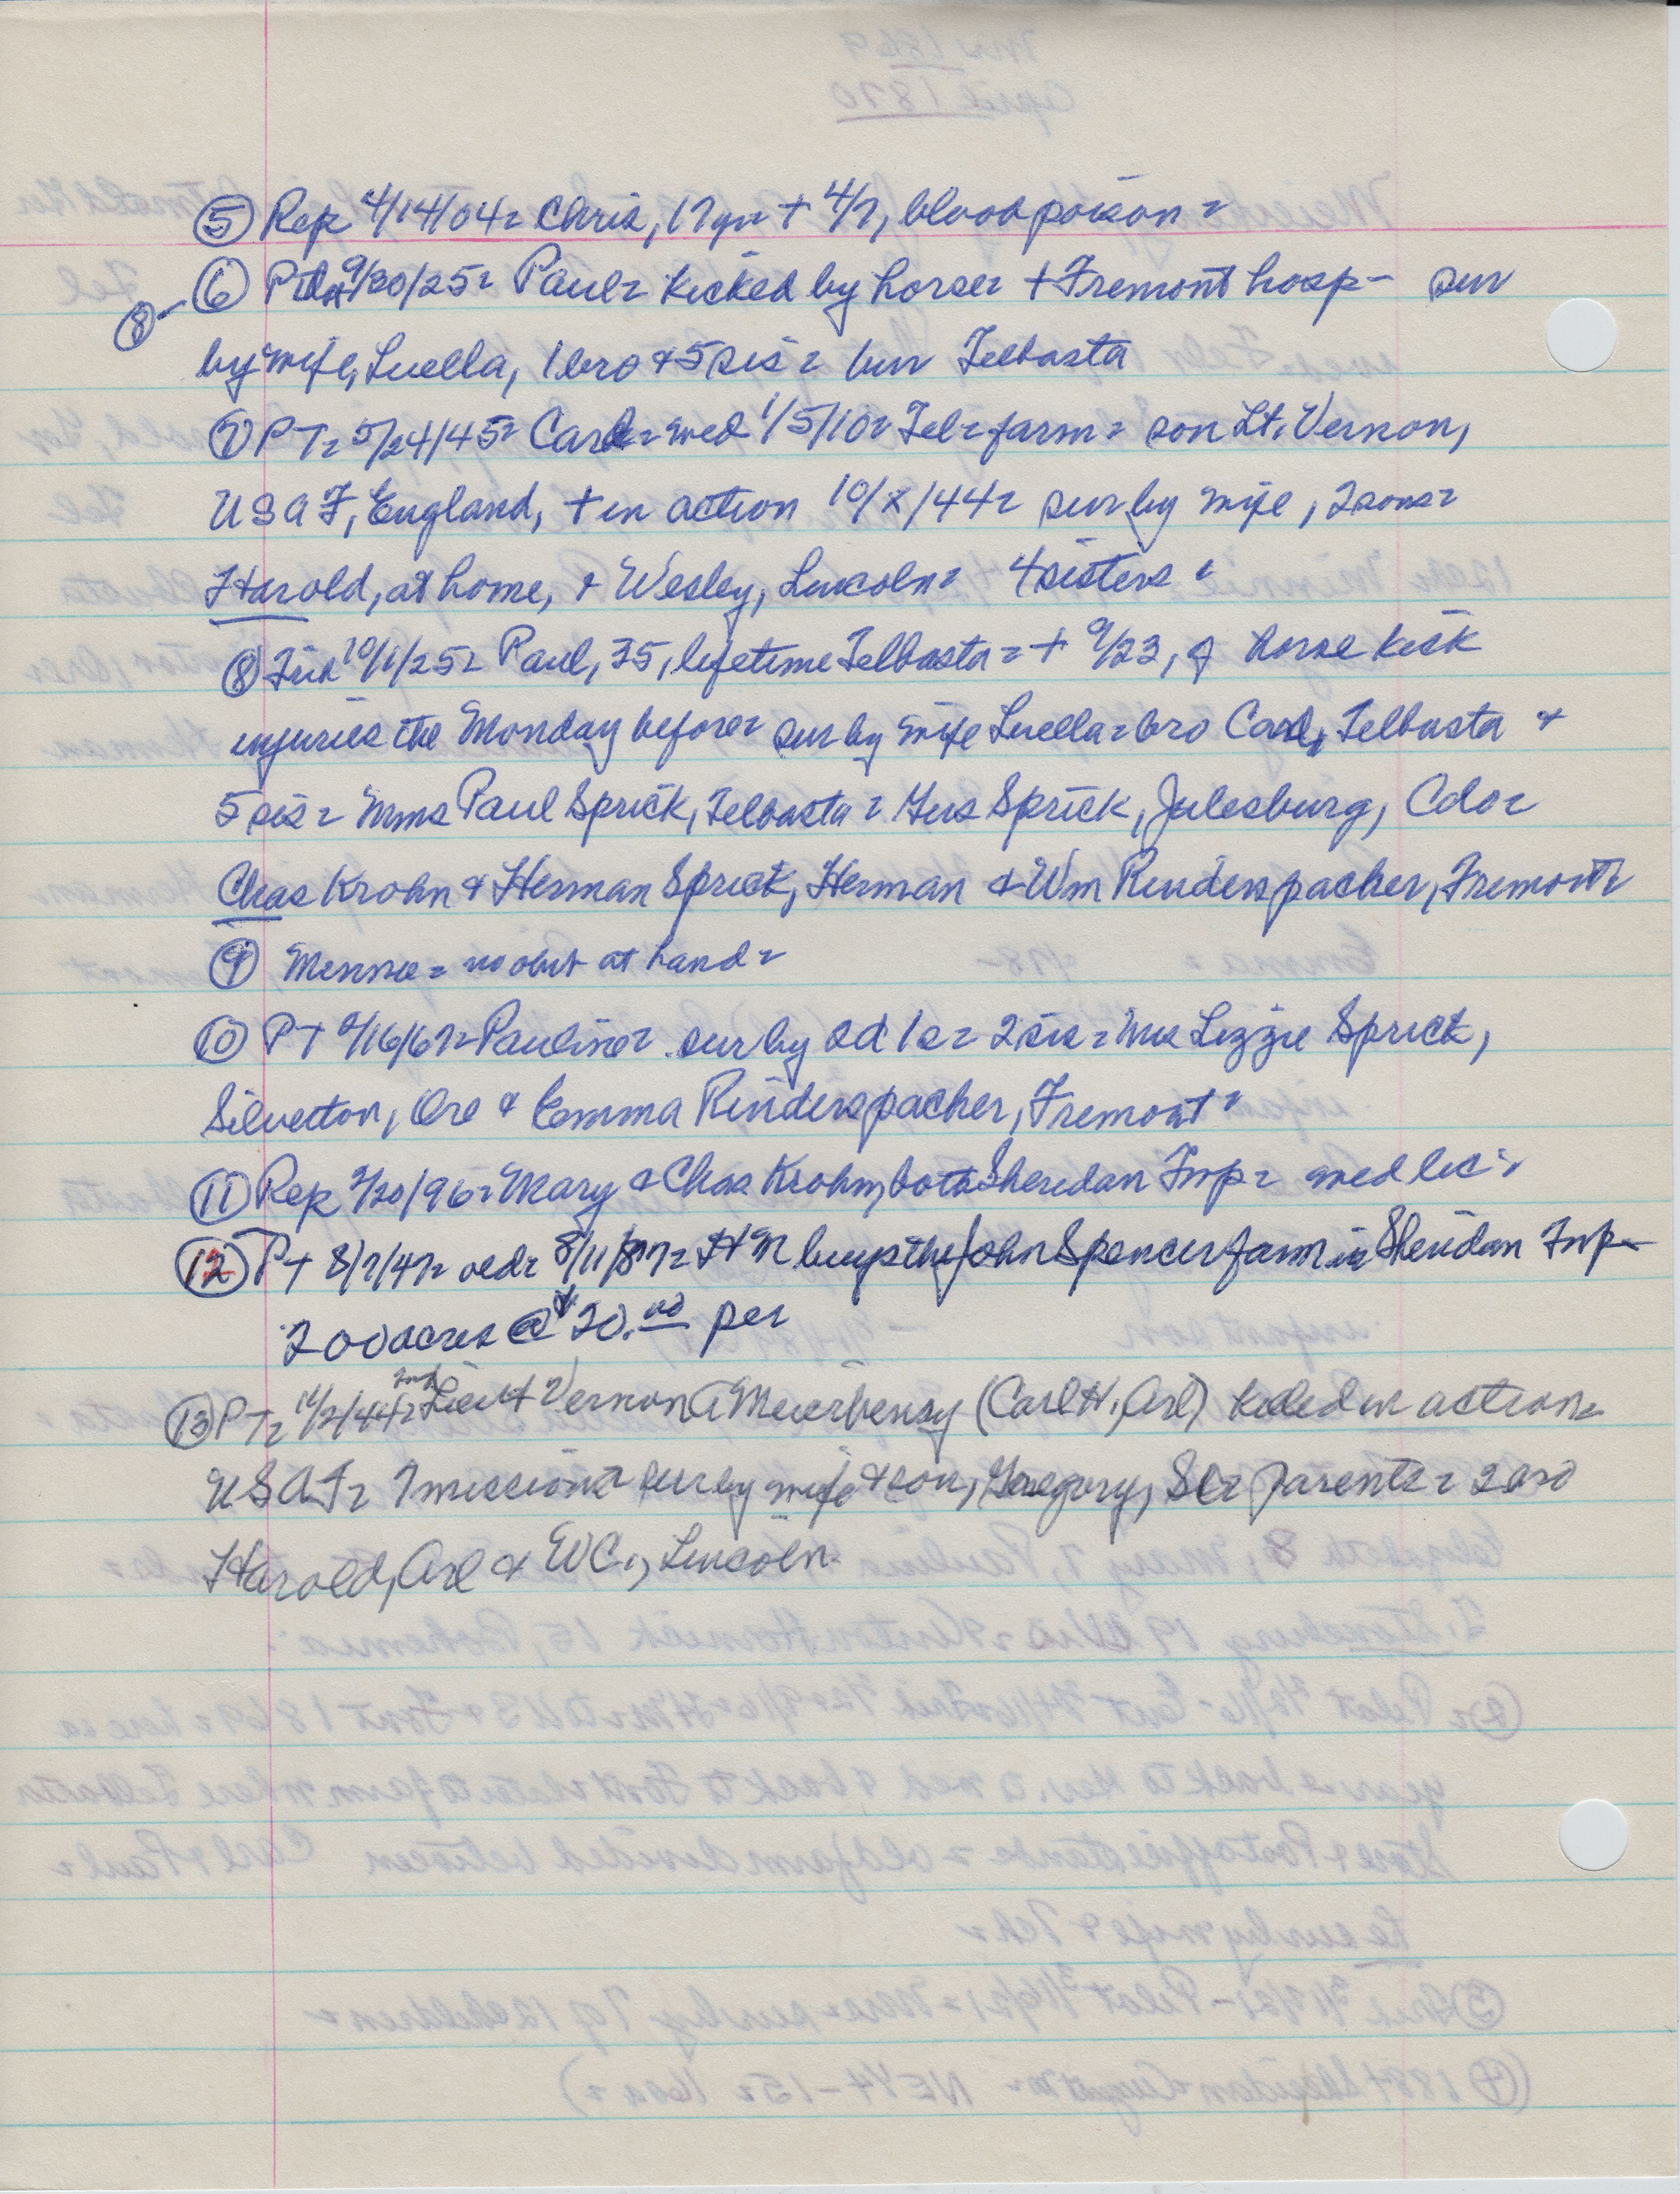 ⑤ Rep 4/14/04= Chris, 17 yr= + 4/7, blood poison =
⑧- ⑥ 9/30/25= Paul= kicked by horse= + Fremont hosp- sur
by wife, Luella, 1 bro & 5 sis = bur Telbasta
⑦ PT= 5/24/45= Carl= wed 1/5/10= Tel= farm= son Lt. Vernon,
USAF, England, + in action 10/x/44= sur by wife, 2 sons=
Harold, at home, & Wesley, Lincoln= 4 sisters =
⑧ 10/1/25= Paul, 35, lifetime Telbasta = + 9/23, of horse kick
injuries the Monday before= sur by wife Luella= bro Carl, Telbasta &
5 sis = Mms Paul Sprick, Telbasta = Gus Sprick, Julesburg, Colo=
Chas Krohn & Herman Sprick, Herman & Wm Rinderspacher, Fremont=
⑨ Minnie = no obit at hand =
⑩ PT /16/67= Pauline= sur by 2d 1s = 2 sis = Mrs Lizzie Sprick,
Silverton, Ore & Emma Rinderspacher, Fremont =
⑪ Rep 2/20/96= Mary & Chas Krohn, both Sheridan Twp= wed lic =
⑫ PT 8/7/47= 8/11/87= HM buys the John Spencer farm in Sheridan Twp-
200 acres @ $20.00 per
⑬ PT= 11/2/44= 2nd Lieut Vernon A Meierhenry (Carl H, Arl) killed in action=
USAF= 7 missions= sur by wife & son, Gregory, parents= 2 bro
Harold, Arl & W C., Lincoln